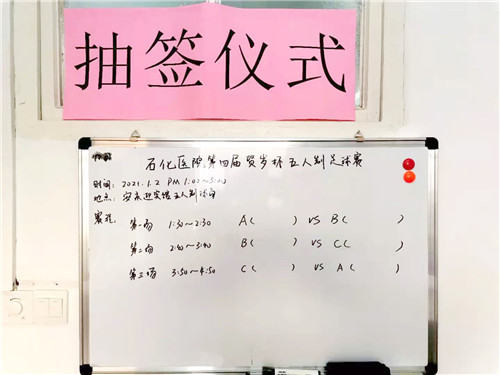 抽签仪式
石化医院第四届贺岁杯五人制足球赛
时间: 2021.1.2 PM 1:00~5:00
地点: 安庆迎宾馆五人制球场
赛程: 第一场 1:30~2:30 A( ) VS B( )
第二场 2:40~3:40 B( ) VS C( )
第三场 3:50~4:50 C( ) VS A( )